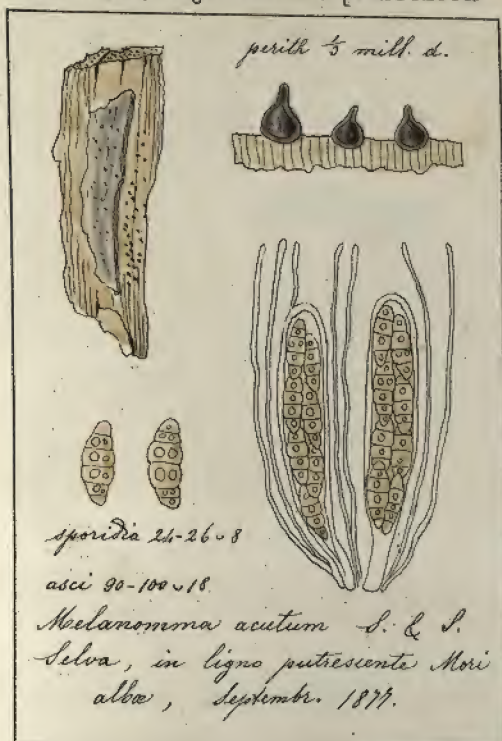 perith ⅓ mill. d.
sporidia 24-26 ᴗ 8
asci 90-100 ᴗ 18
Melanomma acutum S. & S.
Selva, in ligno putrescente Mori
albæ, Septembr. 1877.